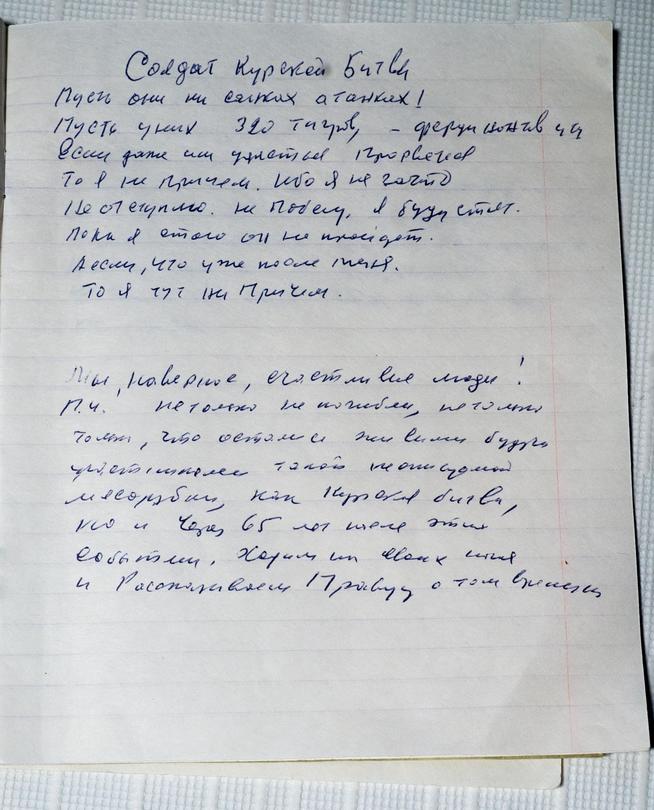 Солдат Курской Битвы
Пусть они на танках атаках!
Пусть у них 320 тигров, –
Если даже им удастся Прорваться
То я не Причем. Ибо я не
Не отступлю. Не Побегу, я буду стоять.
Пока я стою он не пройдет.
А если, что уже после меня.
То я тут не Причем.
Мы, наверное, счастливые люди!
П.ч. не только не погибли, не только
только, что остались живыми будучи
участниками такой
мясорубки, как Курская битва,
но и Через 65 лет после этих
событий. Ходим на своих
и Рассказываем Правду о том времени